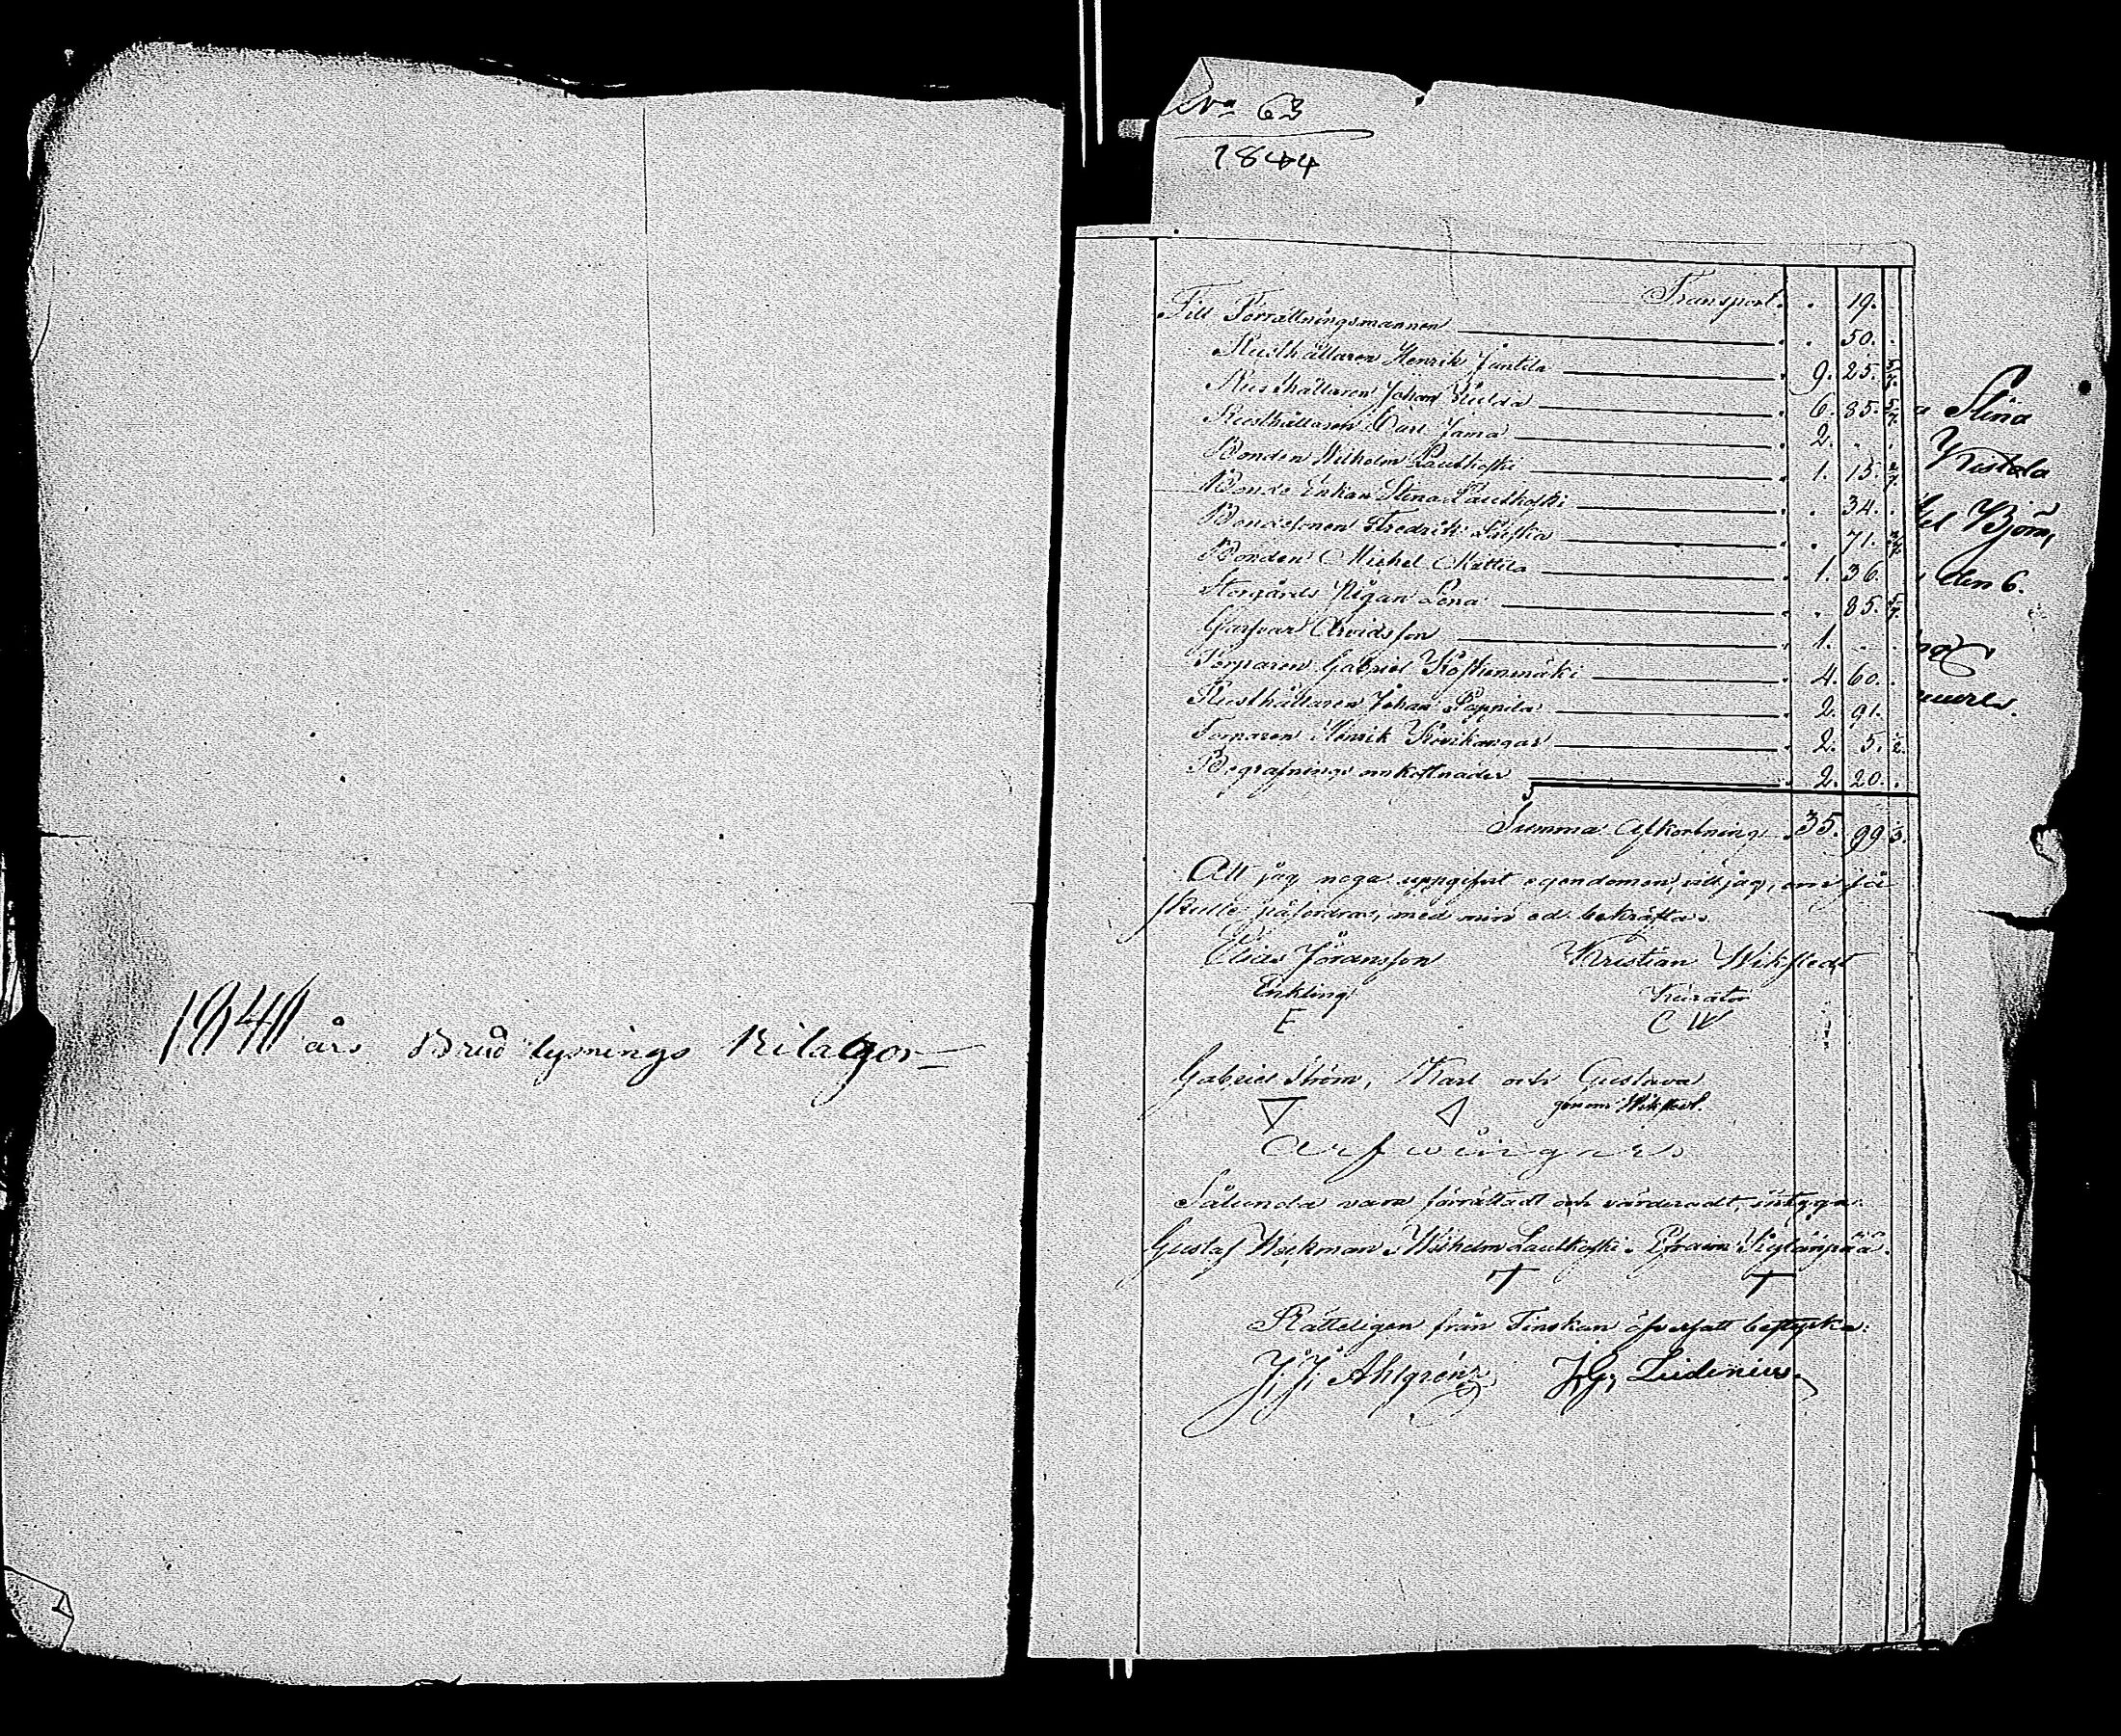 1844 års Brud lysnings Bilagor
No 63
1844
Transport . . 19.
Till Förrättningsmannen . . 50. .
Rusthållaren Henrik Jäntila . 9. 25. 5/7.
Rusthållaren Johan Kulda . 6. 85. 5/7.
Rusthållaren Carl Jama . 2. . .
Bonden Wilhelm Laulkoski . 1. 15. 2/7.
Bonde Enkan Stina Laulkoski . . 34. .
Bondesonen Fredrik . . 71. 3/7.
Bonden Michel Mattila . 1. 36.
Storgårds Pigan Lena . . 85. 5/7.
Garfvar Arvidsson . 1. . .
Torparen Gabriel Koskenmäki . 4. 60. .
Rusthållaren Johan Pappila . 2. 91.
Torparen Henrik . 2. 5. 1/2.
Begrafnings omkostnader . 2. 20. .
Summa Afkortning . 35. 99
Att jag noga uppgifvit egendomen, vill jag, om så
skulle påfordras, med min ed bekräfta.
Elias Göransson Kristian Wikstedt
Enkling Kurator
E C W
Gabriel Ström, Karl och Gustava
genom Wikstedt.
arfwingar
Sålunda vara förrättadt och värderadt, intyga:
Gustaf Wickman. Wilhelm Laulkoski. Efraim
Rätteligen från Finskan öfversatt bestyrka:
J. J. Ahlgren J. G. Lidenius
Stina
Kistola
Björn,
den 6.